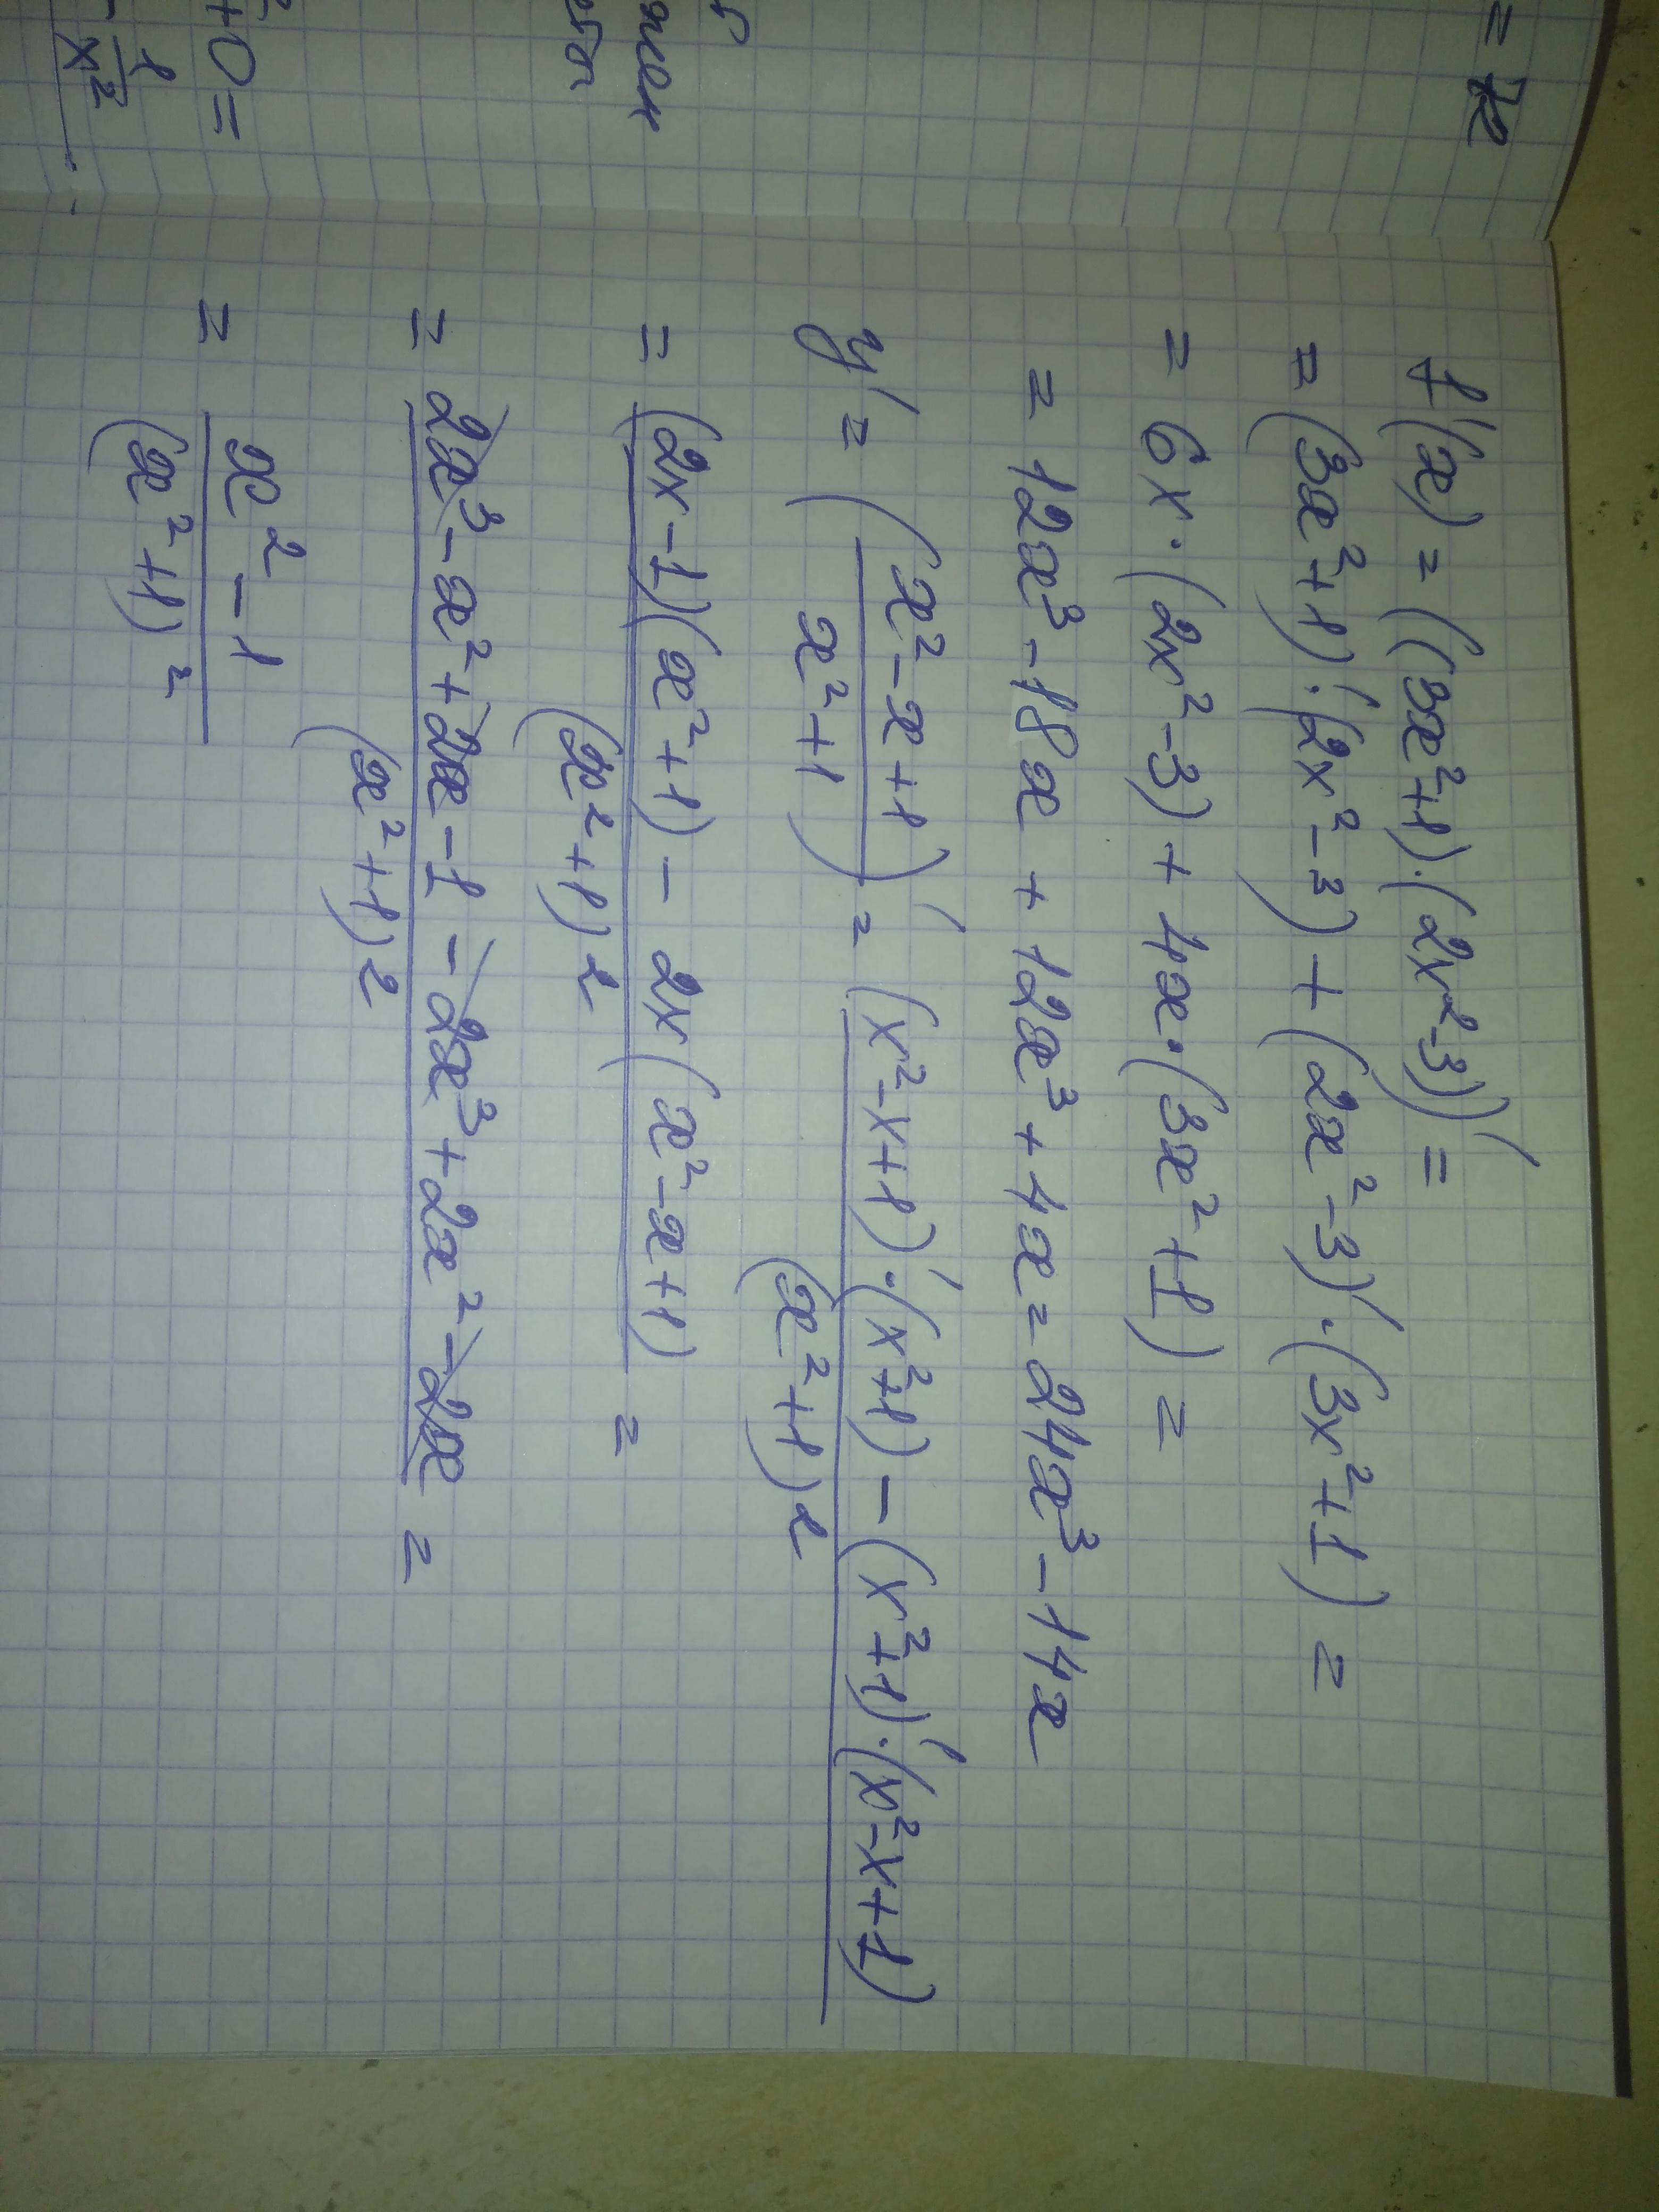 f'(x) = ((3x²+1)·(2x²-3))' =
= (3x²+1)'·(2x²-3) + (2x²-3)'·(3x²+1) =
= 6x·(2x²-3) + 4x·(3x²+1) =
= 12x³-18x + 12x³+4x = 24x³-14x
y' = ((x²-x+1)/(x²+1))' = ((x²-x+1)'·(x²+1) - (x²+1)'·(x²-x+1))/(x²+1)²
= ((2x-1)(x²+1) - 2x(x²-x+1))/(x²+1)² =
= (2x³-x²+2x-1-2x³+2x²-2x)/(x²+1)² =
= (x²-1)/(x²+1)²
+0=
1/x²